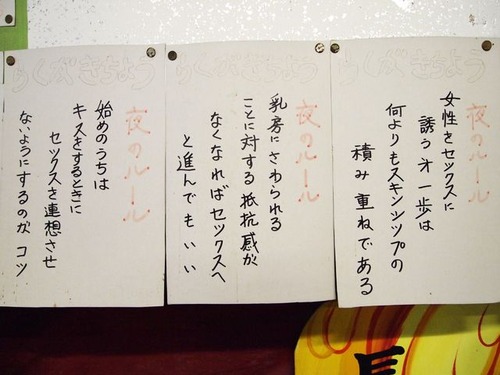 らくがきちょう
夜のルール
女性をセックスに
誘うオ一歩は
何よりもスキンシツプの
積み重ねである
らくがきちょう
夜のルール
乳房にさわられる
ことに対する抵抗感が
なくなればセックスへ
と進んでもいい
らくがきちょう
夜のルール
始めのうちは
キスをするときに
セックスを連想させ
ないようにするのがコツ